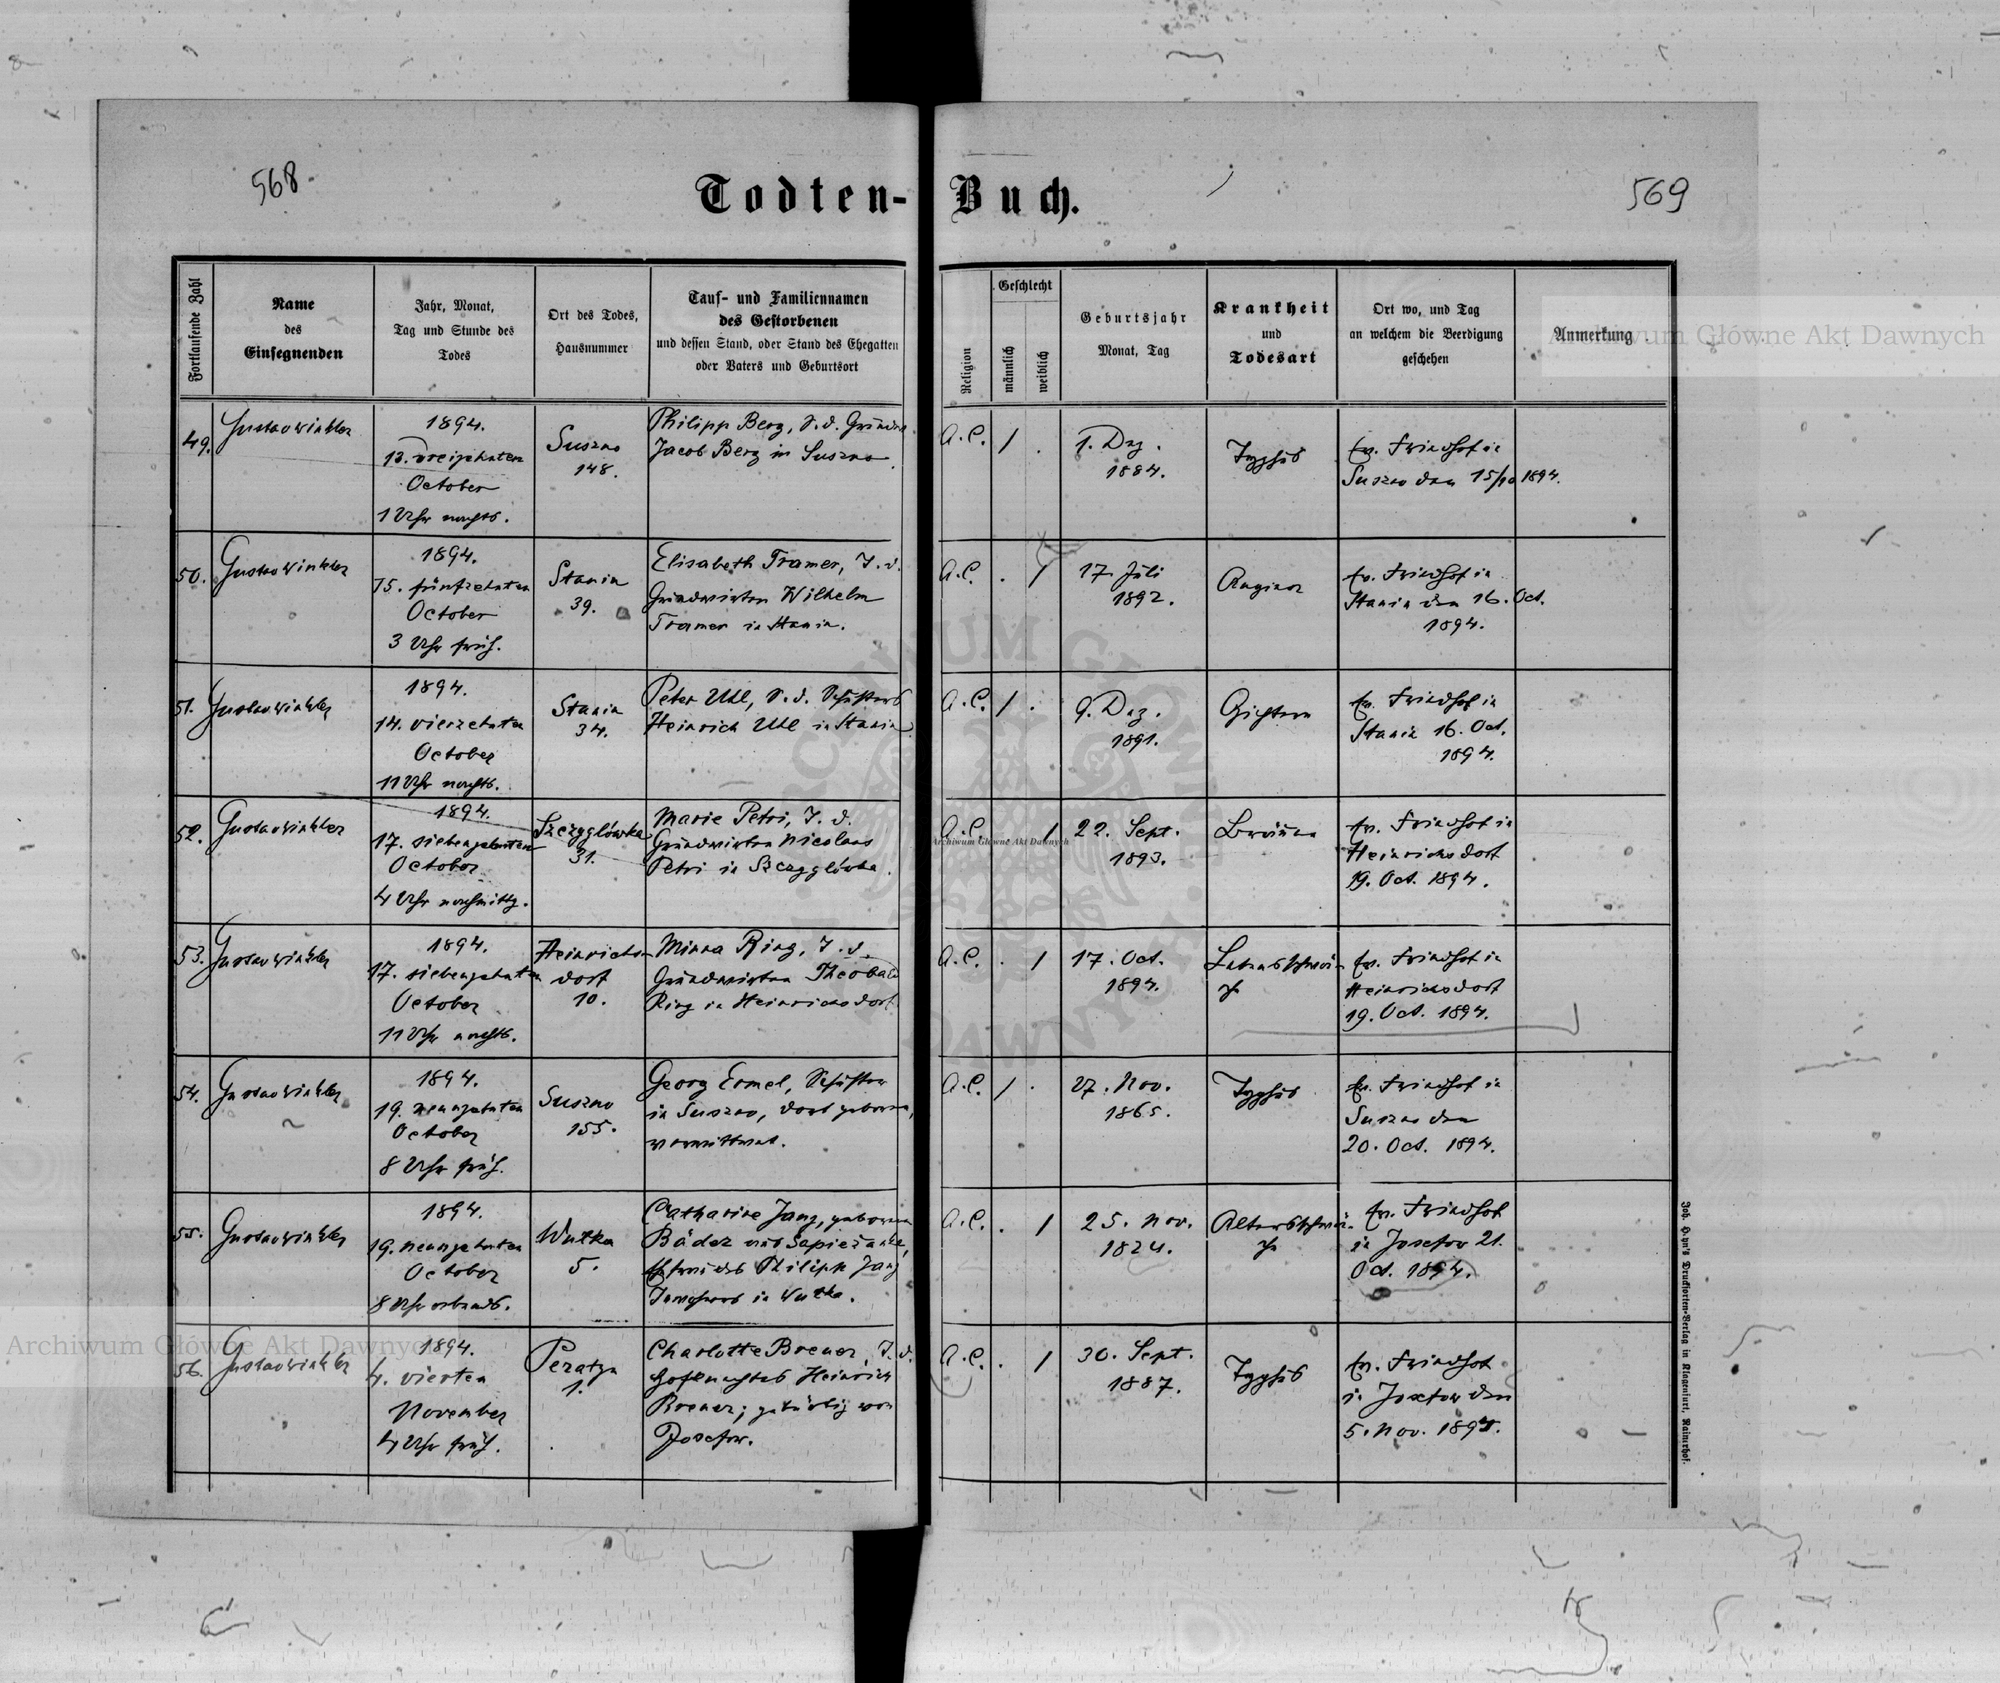 568
569
Todten-Buch.
Fortlaufende Zahl
Name
des
Einsegnenden
Jahr, Monat,
Tag und Stunde des
Todes
Ort des Todes,
Hausnummer
Tauf- und Familiennamen
des Gestorbenen
und dessen Stand, oder Stand des Ehegatten
oder Vaters und Geburtsort
Religion
Geschlecht
männlich
weiblich
Geburtsjahr
Monat, Tag
Krankheit
und
Todesart
Ort wo, und Tag
an welchem die Beerdigung
geschehen
Anmerkung
49.
Gustav Winkler
1894.
13. dreizehnten
October
1 Uhr nachts.
Suszno
148.
Philipp Berg, S. d.
Jacob Berg in Suszno
A.C. / .
1. Dez.
1884.
Typhus
ev. Friedhof in
Suszno den 15/10 1894.
50.
Gustav Winkler
1894.
15. fünfzehnten
October
3 Uhr früh.
Stanin
39.
Elisabeth Tramer, T. d.
Grundwirten Wilhelm
Tramer in Stanin.
A.C. . /
17. Juli
1892.
Angina
ev. Friedhof in
Stanin den 16. Oct.
1894.
51.
Gustav Winkler
1894.
14. vierzehnten
October
11 Uhr nachts.
Stanin
34.
Peter Uhl, S. d. Schusters
Heinrich Uhl in Stanin
A.C. / .
9. Dez.
1891.
Gichtern
ev. Friedhof in
Stanin 16. Oct.
1894.
52.
Gustav Winkler
1894.
17. siebenzehnten
October
4 Uhr nachmittg.
Szczyglówka
31.
Marie Petri, T. d.
Grundwirten Nicolaus
Petri in Szczyglówka.
A.C. /
22. Sept.
1893.
Bräune
ev. Friedhof in
Heinrichsdorf
19. Oct. 1894.
53.
Gustav Winkler
1894.
17. siebenzehnten
October
11 Uhr nachts.
Heinrichs-
dorf
10.
Minna Ring, T. d.
Grundwirten Theobald
Ring in Heinrichsdorf
A.C. . /
17. Oct.
1894.
Lebensschwä-
che
ev. Friedhof in
Heinrichsdorf
19. Oct. 1894.
54.
Gustav Winkler
1894.
19. neunzehnten
October
8 Uhr früh.
Suszno
155.
Georg Ermel, Schuster
in Suszno, dort geboren,
verwittwet.
A.C. / .
27. Nov.
1865.
Typhus
ev. Friedhof in
Suszno den
20. Oct. 1894.
55.
Gustav Winkler
1894.
19. neunzehnten
October
8 Uhr abends.
Wutka
5.
Catharine Jang, geborene
Bäder aus Sapieżanka,
Ehefrau des Philipp Jang
in Wutka.
A.C. . /
25. Nov.
1824.
Altersschwä-
che
ev. Friedhof
in Josefow 21.
Oct. 1894.
56.
Gustav Winkler
1894.
4. vierten
November
4 Uhr früh.
Peratyn
1.
Charlotte Brener, T. d.
Hofknechtes Heinrich
Brener; gebürtig von
Josefow.
A.C. . /
30. Sept.
1887.
Typhus
ev. Friedhof
in Josefow den
5. Nov. 1894.
Archiwum Główne Akt Dawnych
Archiwum Główne Akt Dawnych
Archiwum Główne Akt Dawnych
ARCHIWUM GŁÓWNE AKT DAWNYCH